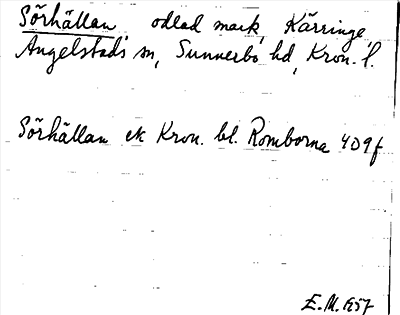 Sörhällan odlad mark, Kärringe
Angelstads sn, Sunnerbo hd, Kron. l.
Sörhällan ek Kron. bl. Romborna 4D9f
E.M. 1957